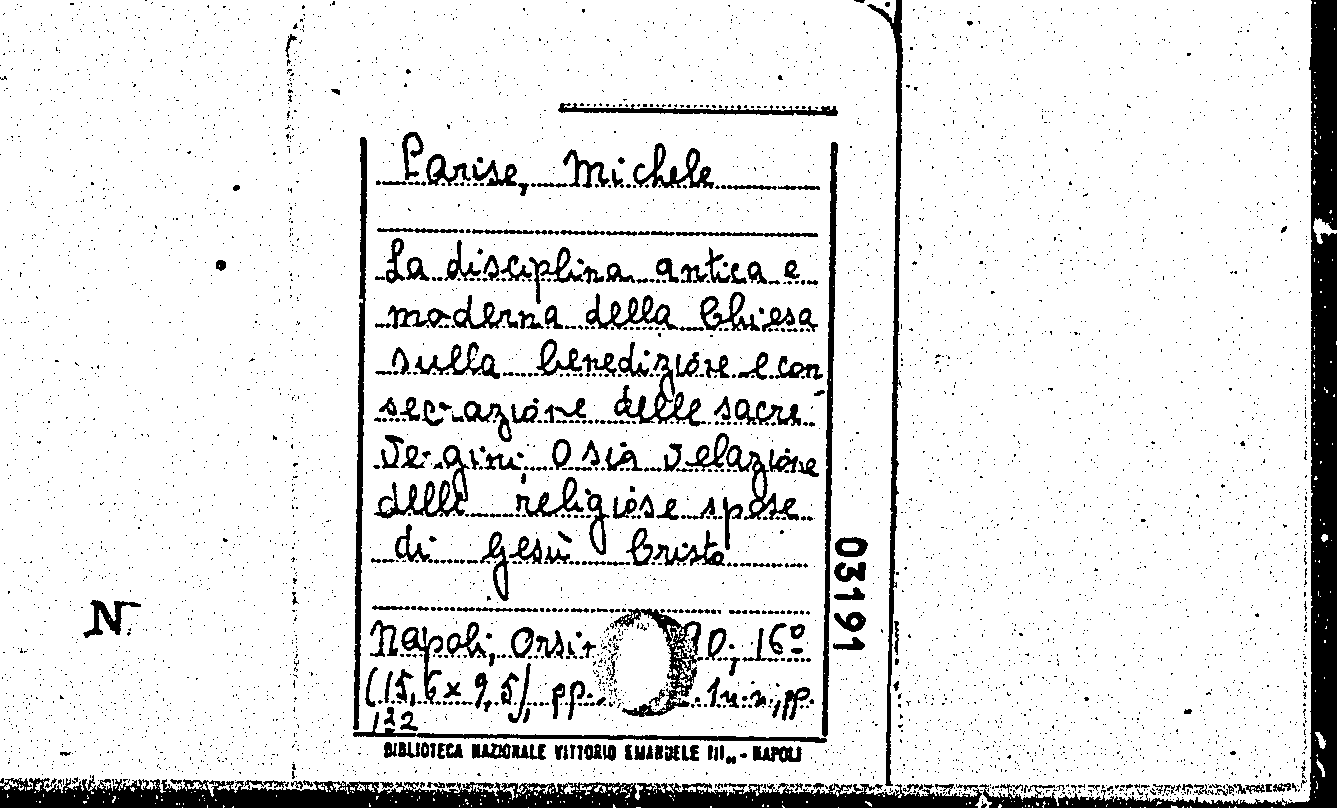 Parise, Michele
La disciplina antica e
moderna della Chiesa
sulla benedizione e con
secrazione delle sacre
Vergini, O sia velazione
delle religiose spose
di Gesù Cristo
Napoli, 16º
(15,6 x 9,5), pp. 1 n.n., pp.
122
BIBLIOTECA NAZIONALE VITTORIO EMANUELE III,, - NAPOLI
03191
N